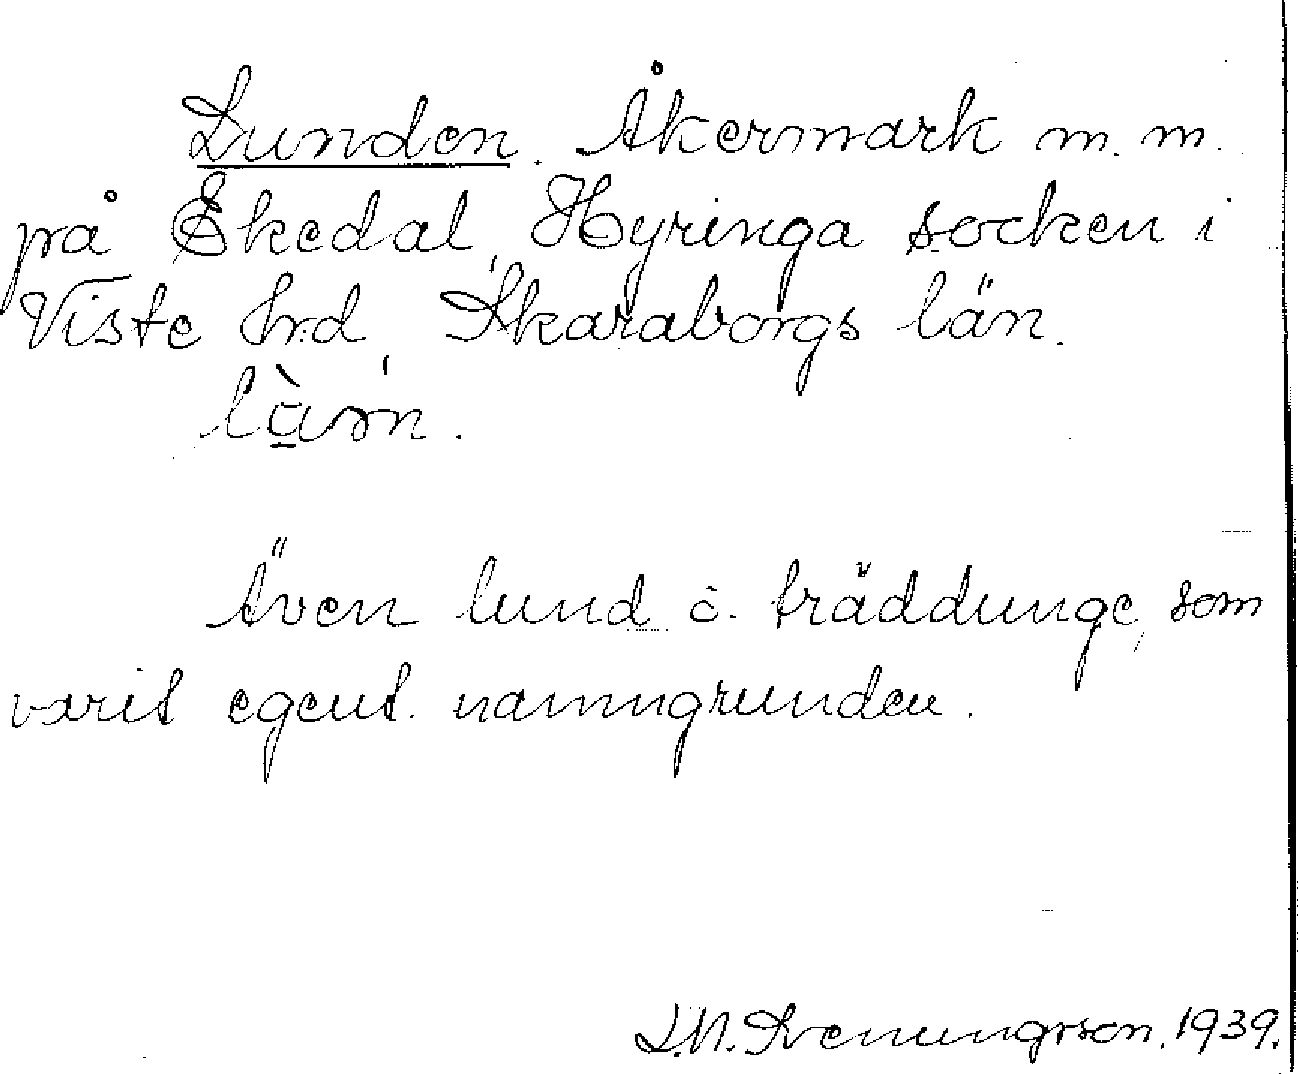 Lunden. Åkermark m. m.
på Ekedal, Hyringa socken i
Viste hrd, Skaraborgs län.
Även lund o. träddunge, som
varit egentl. namngrunden.
1939.